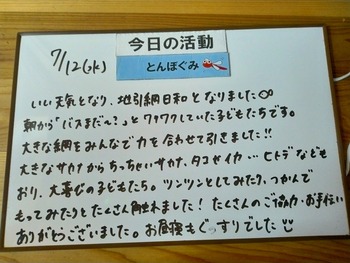 今日の活動
7/12(水) とんぼぐみ
いい天気となり、地引網日和となりました
朝から「バスまだ〜?」とワクワクしていた子どもたちです。
大きな網をみんなで力を合わせて引きました!!
大きなサカナからちっちゃいサカナ、タコやイカ…ヒトデなども
おり、大喜びの子どもたち。ツンツンとしてみたり、つかんで
もってみたりとたくさん触れました!たくさんのご協力・お手伝い
ありがとうございました。お昼寝もぐっすりでした